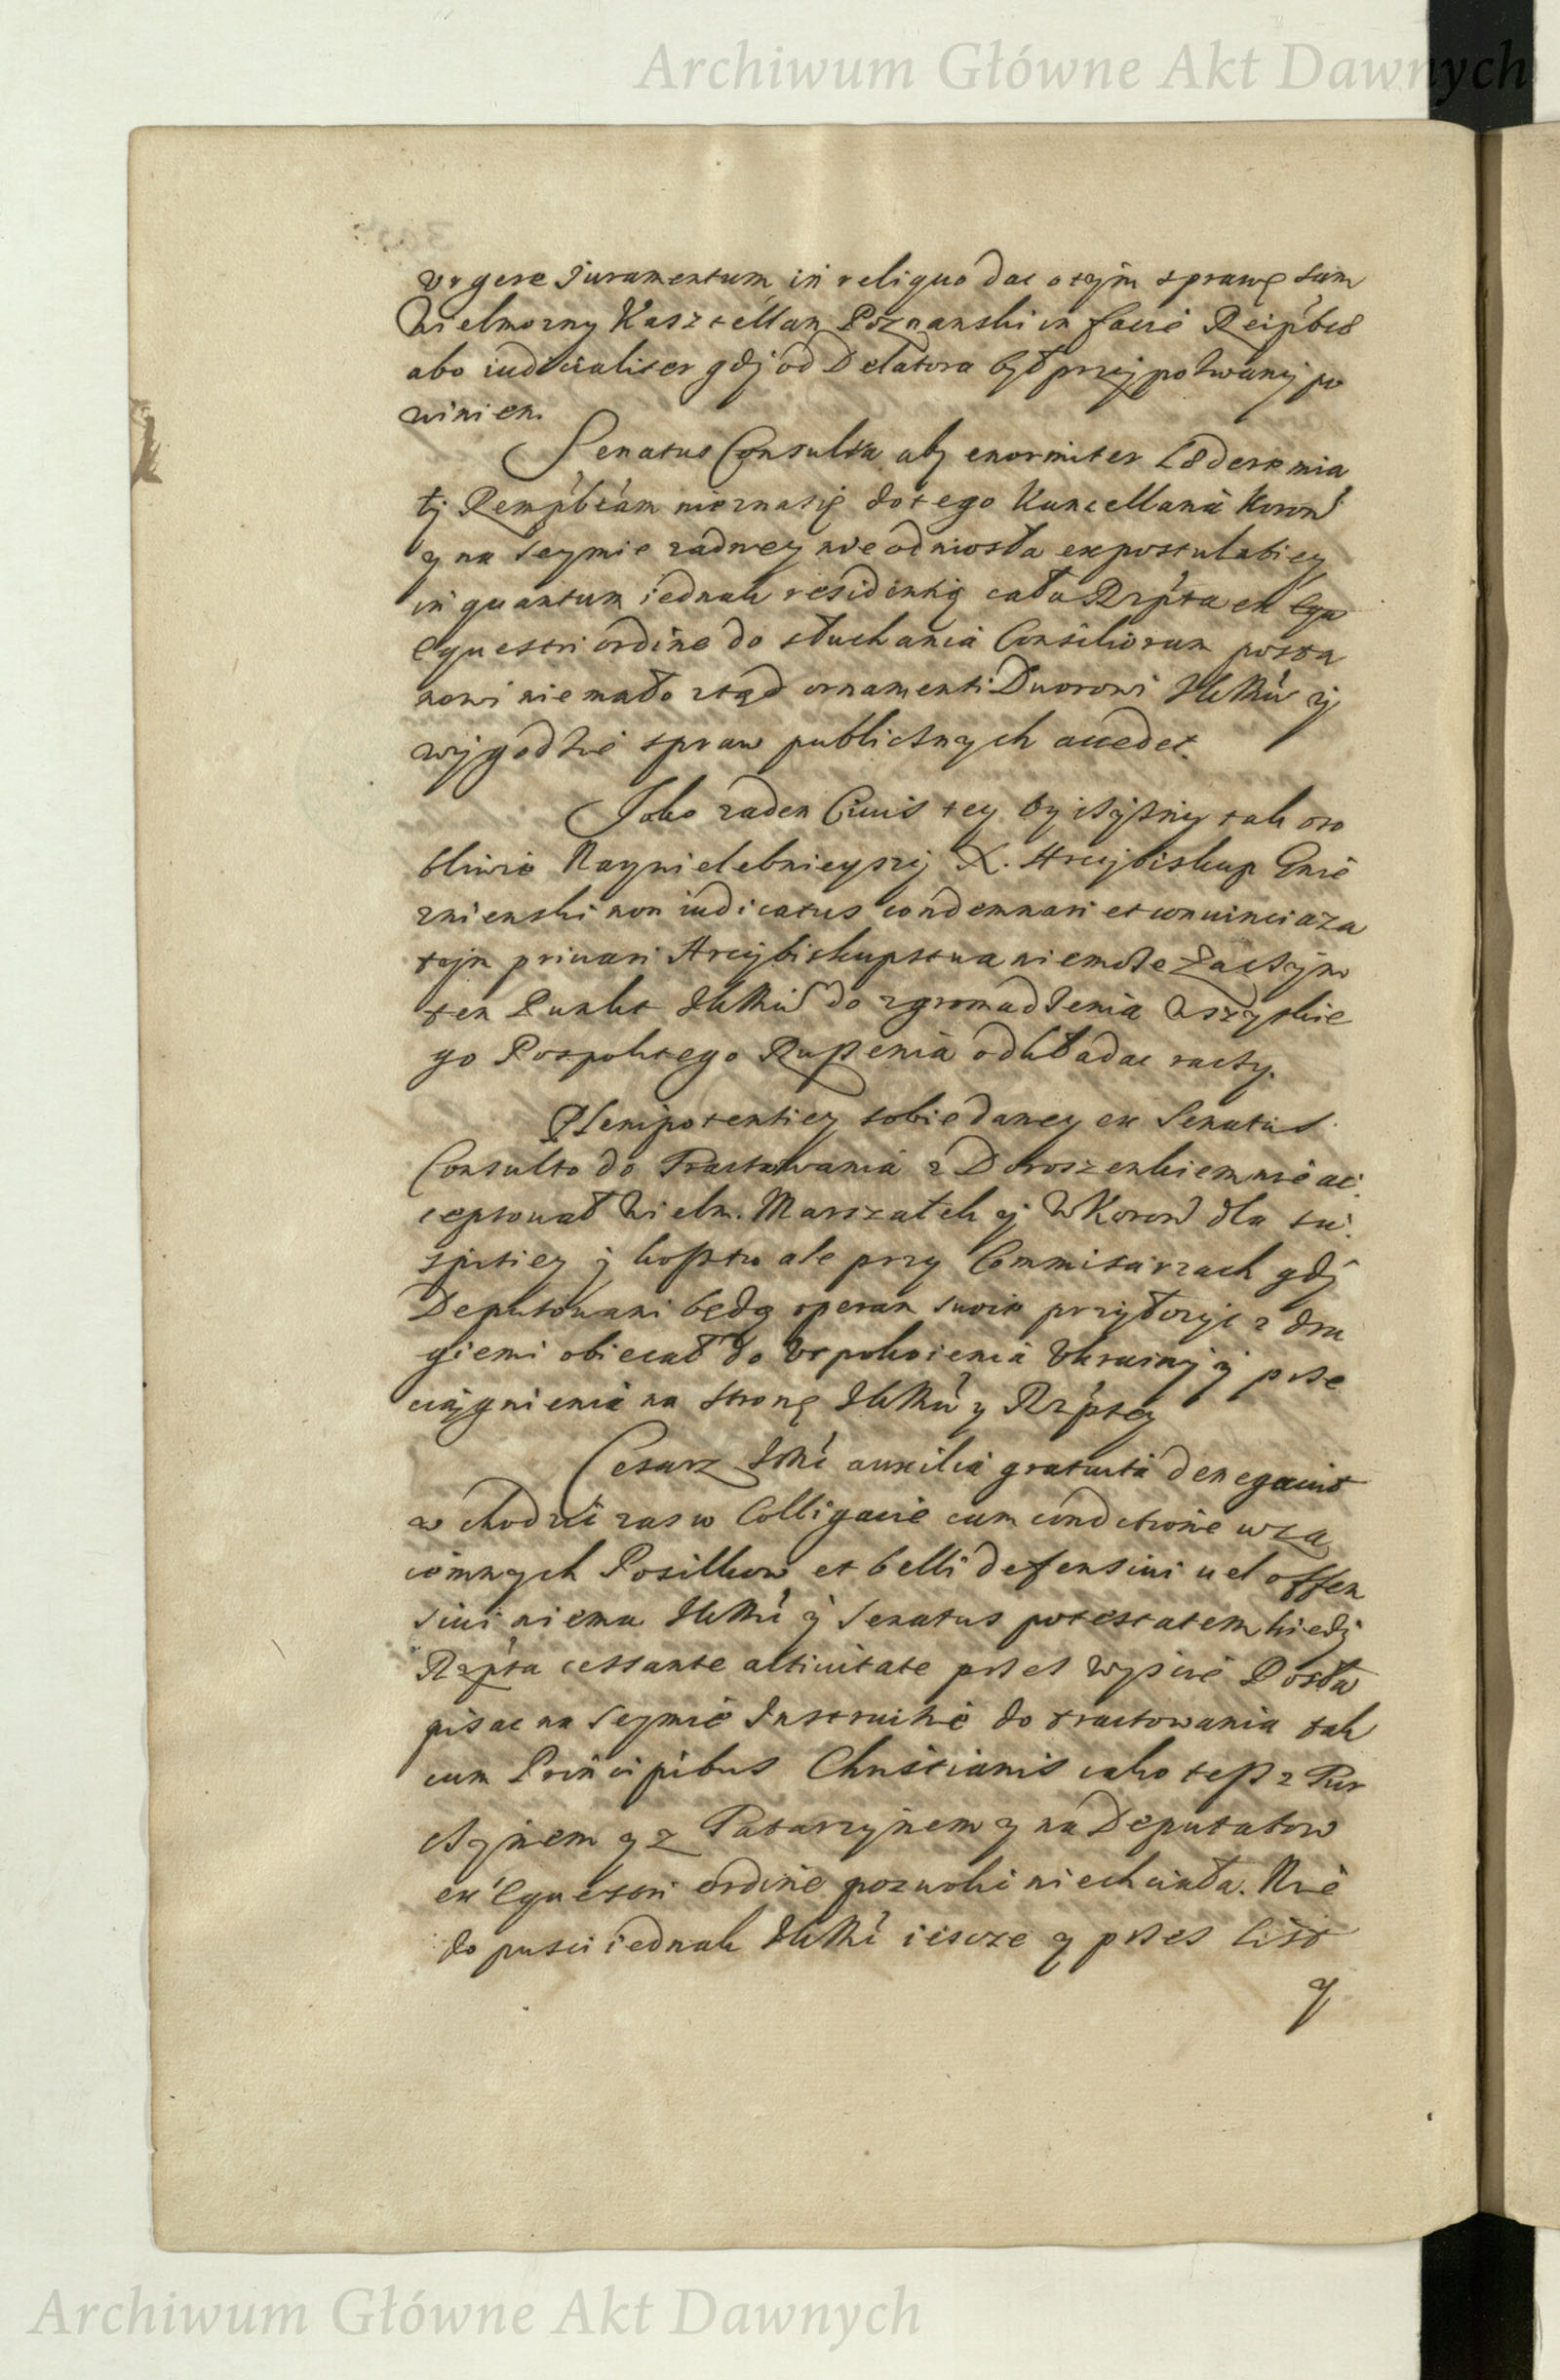 Archiwum Główne Akt Dawnych
urgere Juramentum in reliquo dac o tym sprawę sam
Wielmozny Kasztellan Poznanski in facie Reipbcæ
abo iudicialiter gdj od Delatora był przypozwanÿ po
winien.
Senatus Consulta aby enormiter lædere mia
łÿ Rempbcam nieznasię do tego Kancellaria Koron
y na Seymie zadney nie odniosła expostulatiey
in quantum iednak residentię cała Rzpta ex
Equestri ordine do słuchania Consiliorum posta
nowi niemało ztąd ornamenti Dworowi JKMci ÿ
wÿgodzie spraw publicznych accedet.
Jako zaden Ciuis tey Oyczÿzny tak oso
bliwie Naywielebnieyszÿ X. Arcÿbiskup Gnie
znienski non iudicatus condemnari et conuinci a za
tÿm priuari Arcÿbiskupstwa niemoze Zaczÿm
ten Punkt JKMci do zgromadzenia Wszystkie
go Pospolitego Ruszenia odkładac raczy.
Plenipotentiey sobie daney ex Senatus
Consulto do Tractowania z Doroszenkiem nie ac
ceptował Wielm. Marszałek ÿ WKoron dla su
spitiey ÿ kosztu ale przy Commisarzach gdÿ
Deputowani będą operam swoie przyłozyc z dru
giemi obiecał do Uspokoienia Ukrainÿ ÿ prze
ciągnienia na stronę JKMci y Rzptey
Cesarz JMci auxilia gratuita denegauit
wchodzic zas w Colligacie cum conditione wza
iemnych Posiłkow et belli defensiui uel offen
siui niema JKMci ÿ Senatus potestatem kiedÿ
Rzpta cessante actiuitate przez wyscie Posła
pisac na Seymie Instructie do tractowania tak
cum Principibus Christianis iako tesz z Tur
czÿnem y z Tatarzÿnem y na Deputatow
ex Equestri ordine pozwolic niechciała. Nie
dopusci iednak JKMci iescze y przez List
y
Archiwum Główne Akt Dawnych